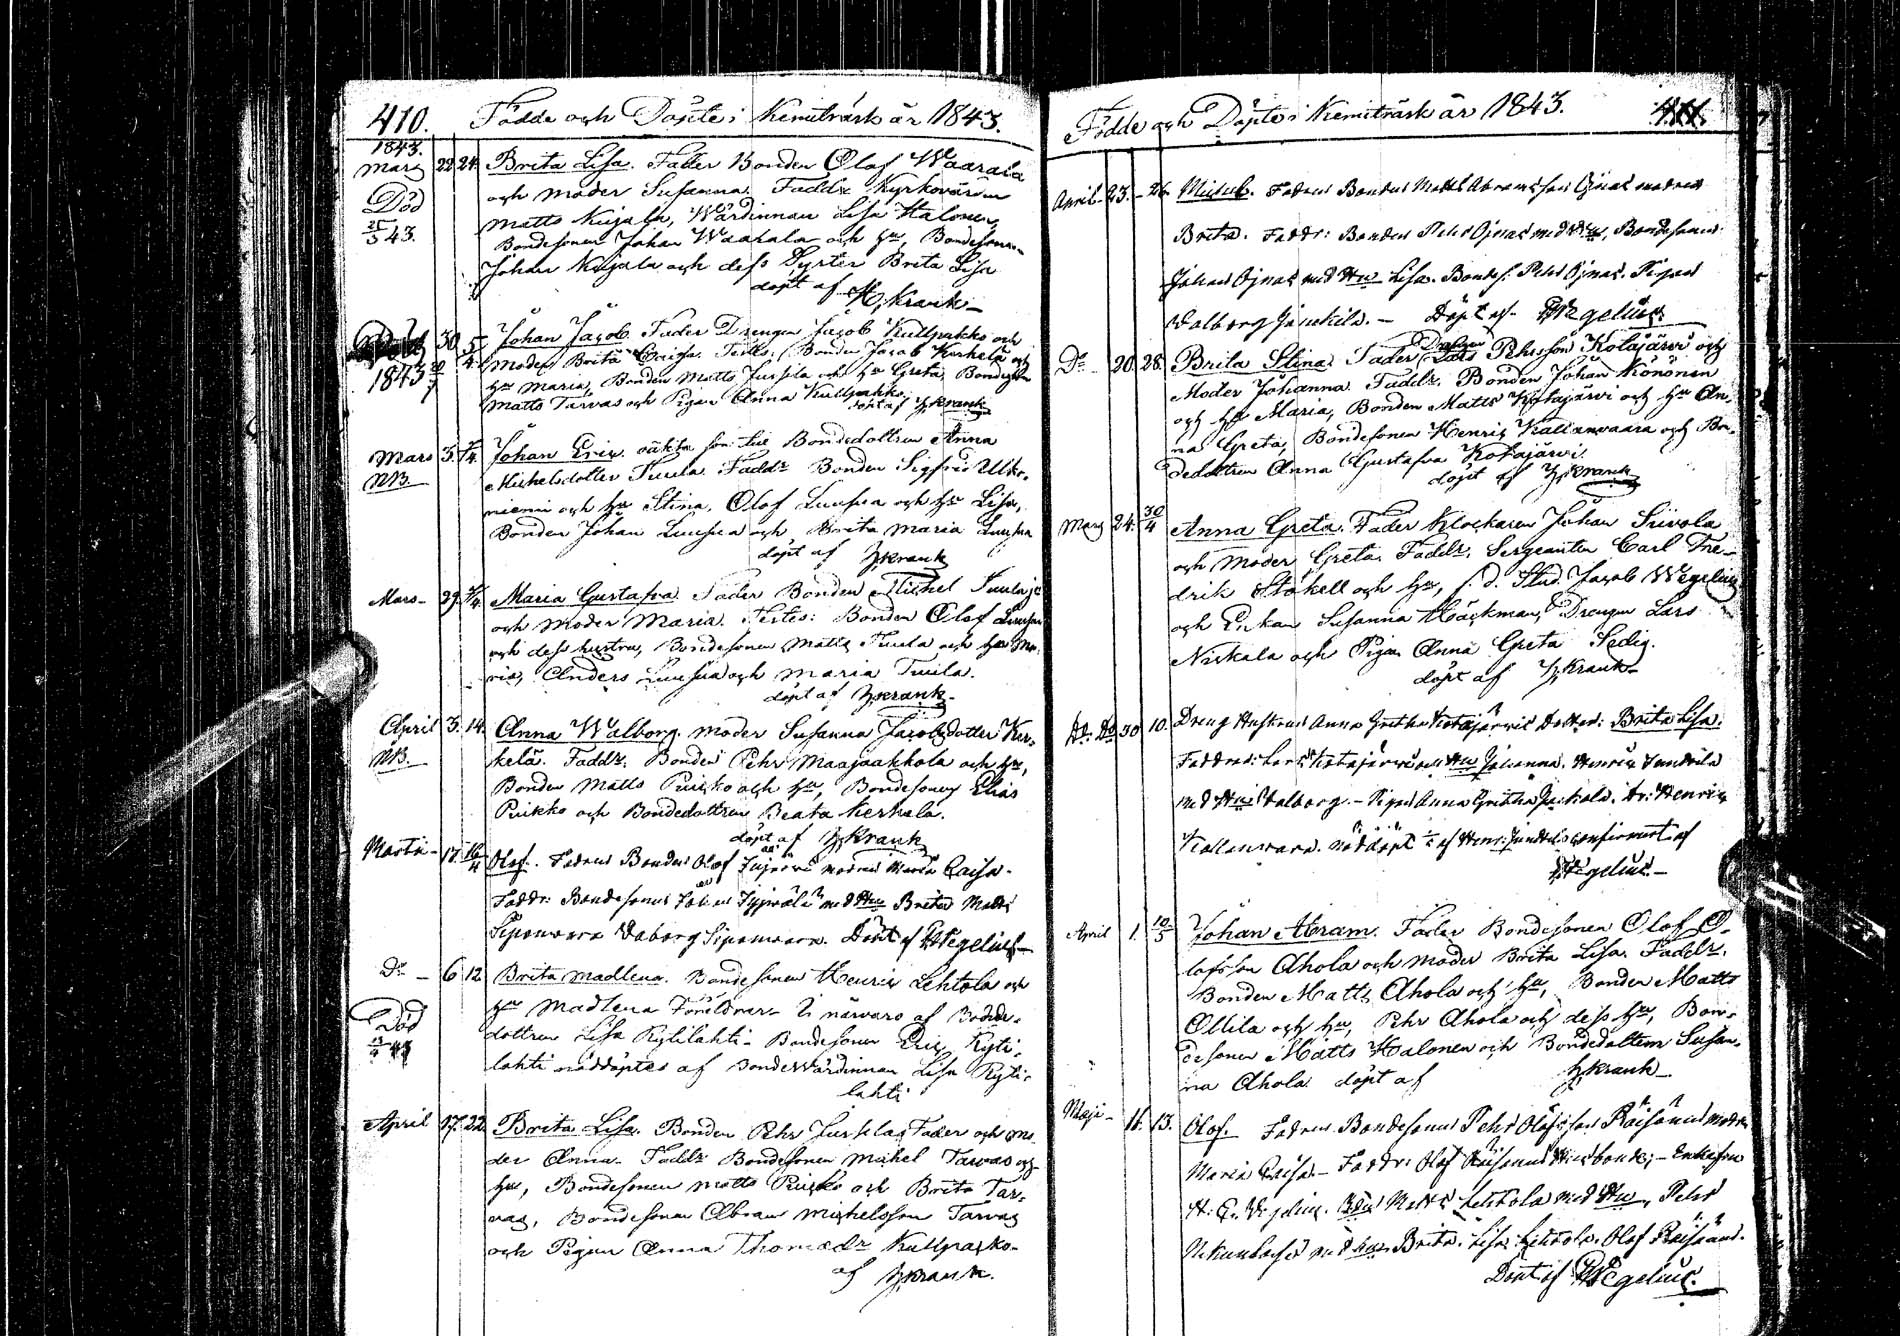 410. Födde och Döpte i Kemiträsk år 1843.
1843.
Mars 22. 24. Brita Lisa. Fader Bonden Olof Waarala
Död och moder Susanna. Faddr Kyrkovärden
25/3 43. Matts Kujala, Wärdinnan Lisa Halonen,
Bondesonen Johan Waarala och hu, Bondesonen
Johan Kujala och dess Syster Brita Lisa
döpt af Hkrank
Död 30. 5/4. Johan Jacob. Fader Drengen Jacob Kullpakko och
1843 Moder Brita Caisa. Testes: Bonden Jacob Kerkelä och
hu Maria, Bonden Matts Jussila och hu Greta, Bondeson
Matts Tarvas och Pigan Anna Kullpakko.
döpt af Hkrank
Mars 3. Johan Eric. oäkta son till Bondedottren Anna
NB. Michelsdotter Tuula. Faddr Bonden Sigfrid Ulko-
niemi och hu Stina, Olof Luusua och hu Lisa,
Bonden Johan Luusua och Brita Maria Luusua
döpt af Hkrank
Mars 29. Maria Gustafva. Fader Bonden Michel Tuula
och Moder Maria. Testes: Bonden Olof Luusua
och dess hustru, Bondesonen Matts Tuula och hu Ma-
ria, Anders Luusua och Maria Tuula.
döpt af Hkrank
April 3. 14. Anna Walborg. Moder Susanna Jacobsdotter Ker-
NB. kelä. Faddr. Bonden Pehr Maajaakkola och hu,
Bonden Matts Puikko och hu, Bondesonen Elias
Puikko och Bondedottren Beata Kerkelä.
döpt af Hkrank
17. 16/4 Olof. Fadren Bonden Olof modren Maria Caisa.
Faddr: Bondesonen Johan med Hu Brita Matts
Siponwara Walborg Siponwara. Döpt af HWegelius
Do 6 12 Brita Madlena. Bondesonen Henric Lehtola och
hu Madlena Föräldrar. I närvaro af Bonde-
Död dottren Lisa Kytilahti. Bondesonen Eric Kyti-
lahti nöddöptes af Bondevärdinnan Lisa Kyti-
lahti
April 17. 22. Brita Lisa. Bonden Pehr Jussila Fader och Mo
der Anna. Faddr Bondesonen Michel Tarvas och
hu, Bondesonen Matts Puikko och Brita Tar-
vas, Bondesonen Abram Michelsson Tarvas
och Pigan Anna Thomædr Kullpakko.
af Hkrank.
Födde och Döpte i Kemiträsk år 1843. 411.
April 23. 26. Michel. Fadren Bonden Matts Abramsson Ojnas modren
Brita. Faddr: Bonden Pehr Ojnas med Hu, Bondesonen
Johan Ojnas med Hu Lisa. Bondes. Pehr Ojnas. Pigan
Valborg. Döpt af HWegelius
Do 20. 28. Brita Stina. Fader Lars Pehrsson Kotajärvi och
Moder Johanna. Faddr. Bonden Johan Könönen
och hu Maria, Bonden Matts Kotajärvi och hu An-
na Greta, Bondesonen Henric Kallanvaara och Bon-
dedottren Anna Gustafva Kotajärvi.
döpt af Hkrank
Mars 24. 30/4 Anna Greta. Fader Klockaren Johan Siivola
och Moder Greta. Faddr. Sergeanten Carl Fre-
drik Ståhell och hu, s. d. Stud. Jacob Wegelius
och Enkan Susanna Häckman, Drengen Lars
Niskala och Pigan Anna Greta Sedig.
döpt af Hkrank
30 10. Dreng Hustrun Anna Greta Kotajärvis Dotter: Brita Lisa.
Faddrar: Lars Kotajärvi och Hu Johanna. Henric
med Hu Walborg. Pigan Anna Greta. Henric
Kallanwara. nöddöpt af confirmert af
HWegelius.
April 1. 10/5 Johan Abram. Fader Bondesonen Olof O-
lofsson Ahola och Moder Brita Lisa. Faddr.
Bonden Matts Ahola och hu, Bonden Matts
Ollila och hu, Pehr Ahola och dess hu, Bon-
desonen Matts Halonen och Bondedottern Susan-
na Ahola döpt af Hkrank
Maji 11. 13. Olof. Fadren Bondesonen Pehr Olofsson Räisänen modren
Maria Caisa. Faddr: Olof Räisänen
Matts Lehtola med Hu, Pehr
med hu Brita. Lisa Lehtola. Olof Räisänen.
Döpt af HWegelius.